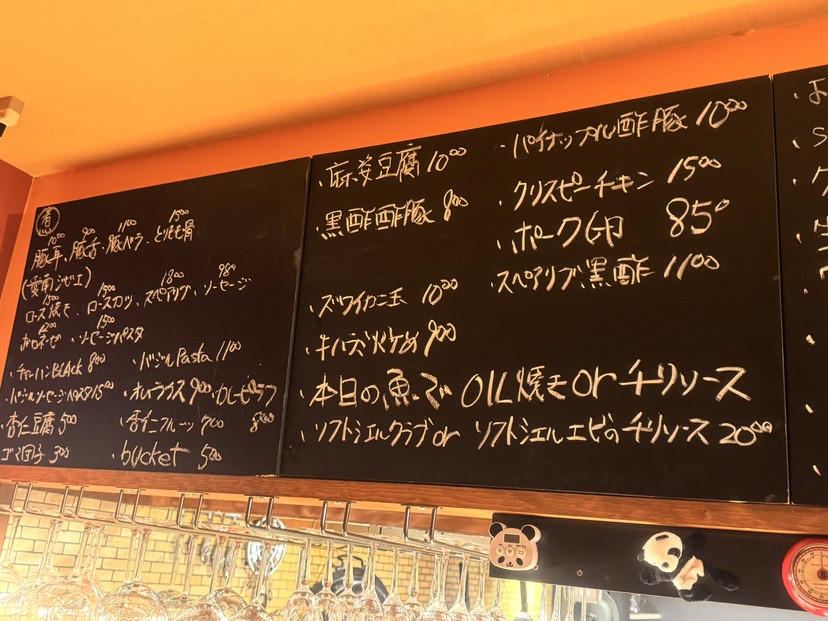 1000 900 1100 1500
豚耳、豚舌、豚バラ、とりもも骨
(愛南ジビエ)
1500 1500 1800 980
ロース焼き、ロースカツ、スペアリブ、ソーセージ
1200 1500
ボロネーゼ、ソーセージパスタ
・チャーハンBLAck 800
・バジルPasta 1100
・バジルソーセージパスタ1500
・オレバラフス 900
・カレービーフ
800
・杏仁豆腐 500
・杏仁フルーツ 700
ゴマ団子 300
・bucket 500
・麻婆豆腐 1000
・黒酢酢豚 800
・ズワイカニ玉 1000
・キハダ炒め 900
・パイナップル酢豚 1000
・クリスピーチキン 1500
・ポーク卵 850
・スペアリブ黒酢 1100
・本日の魚で OIL焼き or チリソース
・ソフトシェルクラブ or ソフトシェルエビのチリソース 2000